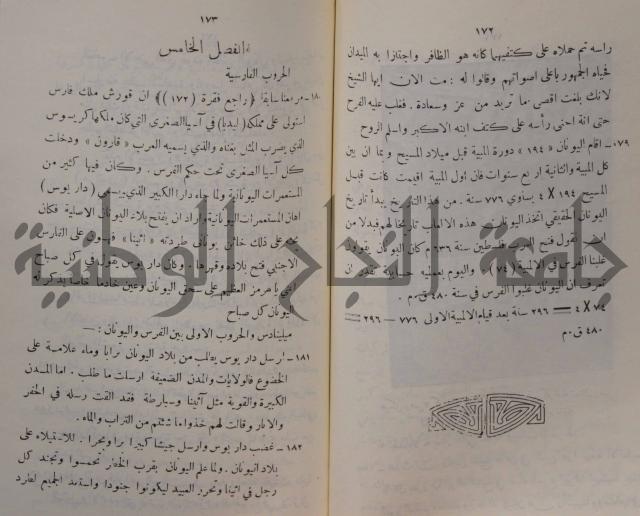 ١٧٢
راسه ثم حملاه على كتفيهما كانه هو الظافر واجتازا به الميدان
فحياه الجمهور باعلى اصواتهم وقالوا له : مت الان ايها الشيخ
لانك بلغت اقصى ما تريد من عز وسعادة . فغلب عليه الفرح
حتى انه احنى رأسه على كتف ابنه الاكبر واسلم الروح
١٧٩ـ اقام اليونان « ١٩٤ » دورة المبية قبل ميلاد المسيح وبما ان بين
كل المبية والثانية اربع سنوات فان اول المبية اقيمت كانت قبل
المسيح ١٩٤ X ٤ يساوي ٧٧٦ سنة . من هذا التاريخ يبدأ تاريخ
اليونان الحقيقي اتخذ اليونان من هذه الالعاب تاريخا لهم فبدلا من
ان نقول فتح العرب فلسطين سنة ٦٣٦ م كان اليونان يقولون
غلبنا الفرس في الالمبية (٧٤) . واليوم بعملية حسابية نقدر ان
نعرف ان اليونان غلبوا الفرس في سنة ٤٨٠ ق.م .
٧٤ X ٤ = ٢٩٦ سنة بعد قيام الالمبية الاولى ٧٧٦ — ٢٩٦ =
٤٨٠ ق.م
١٧٣
الفصل الخامس
الحروب الفارسية
١٨٠ـ مر معنا سابقا ( راجع فقرة (١٧٢) ) ان قورش ملك فارس
استولى على مملكة (ليديا) في آسيا الصغرى التي كان ملكها كريسوس
الذي يضرب المثل بغناه والذي يسميه العرب « قارون » ودخلت
كل آسيا الصغرى تحت حكم الفرس . وكان فيها كثير من
المستعمرات اليونانية ولما جاء دارا الكبير الذي يسمى (دار يوس)
اهان المستعمرات اليونانية واراد ان يفتح بلاد اليونان الاصلية فكان
على ذلك خائن يوناني طردته « اثينا »
الاجنبي فتح بلاده وقهرها . وكان دار يوس يقول في كل صباح
هرمز العظيم على اليونان وعين خادما خاصا يذكره
اليونان كل صباح
ميليتادس والحروب الاولى بين الفرس واليونان : —
١٨١ـ ارسل دار يوس يطلب من بلاد اليونان ترابا وماء علامة على
الخضوع فالولايات والمدن الضعيفة ارسلت ما طلب . اما المدن
الكبيرة والقوية مثل آثينا وسبارطة فقد القت رسله في الحفر
والابار وقالت لهم خذوا ما شئتم من التراب والماء .
١٨٢ـ غضب دار يوس وارسل جيشا كبيرا برا وبحرا . للاستيلاء على
بلاد اليونان . ولما علم اليونان بقرب الخطر تحمسوا وتجند كل
رجل في اثينا وتحرر العبيد ليكونوا جنودا واستعد الجميع لطرد
جامعة النجاح الوطنية